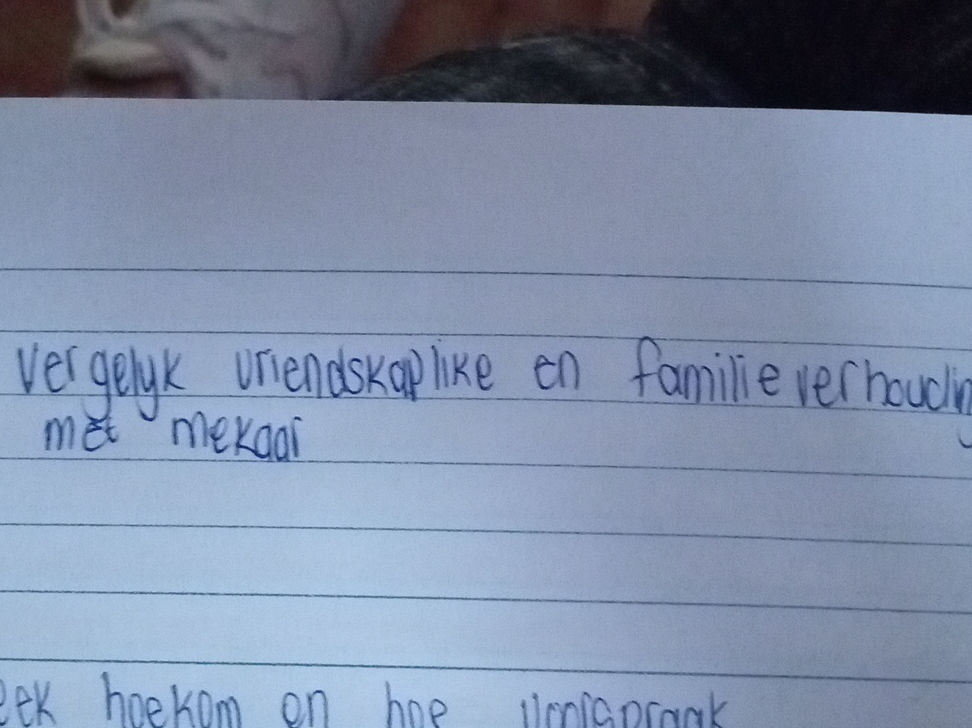 Vergelyk vriendskaplike en familie verhouding
met mekaar
hoekom en hoe